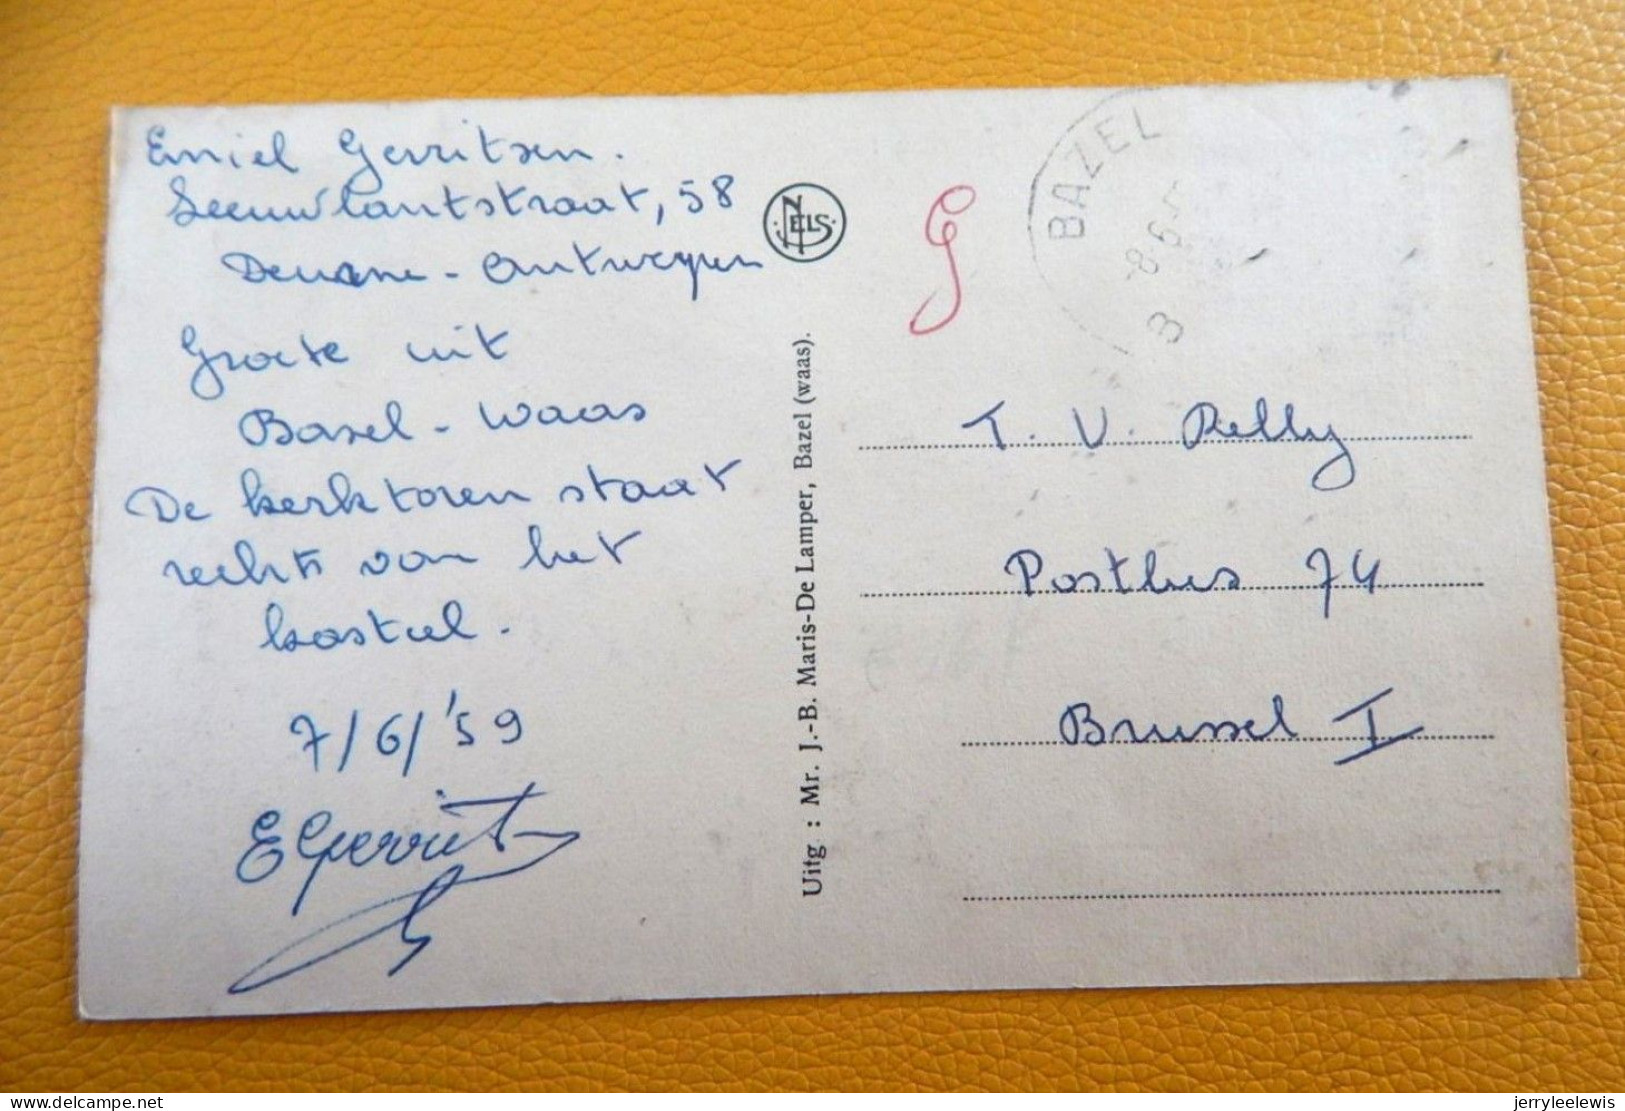 Emiel Gerritsen.
Leeuwlantstraat, 58
Deurne - Antwerpen
Groete uit
Basel - Waas
De kerktoren staat
rechts van het
kasteel.
7/6/'59
E Gerrits
NELS
Uitg : Mr. J.-B. Maris-De Lamper, Bazel (waas).
G
BAZEL
8-6
B
T. V. Relly
Postbus 74
Brussel I
delcampe.net
jerryleelewis